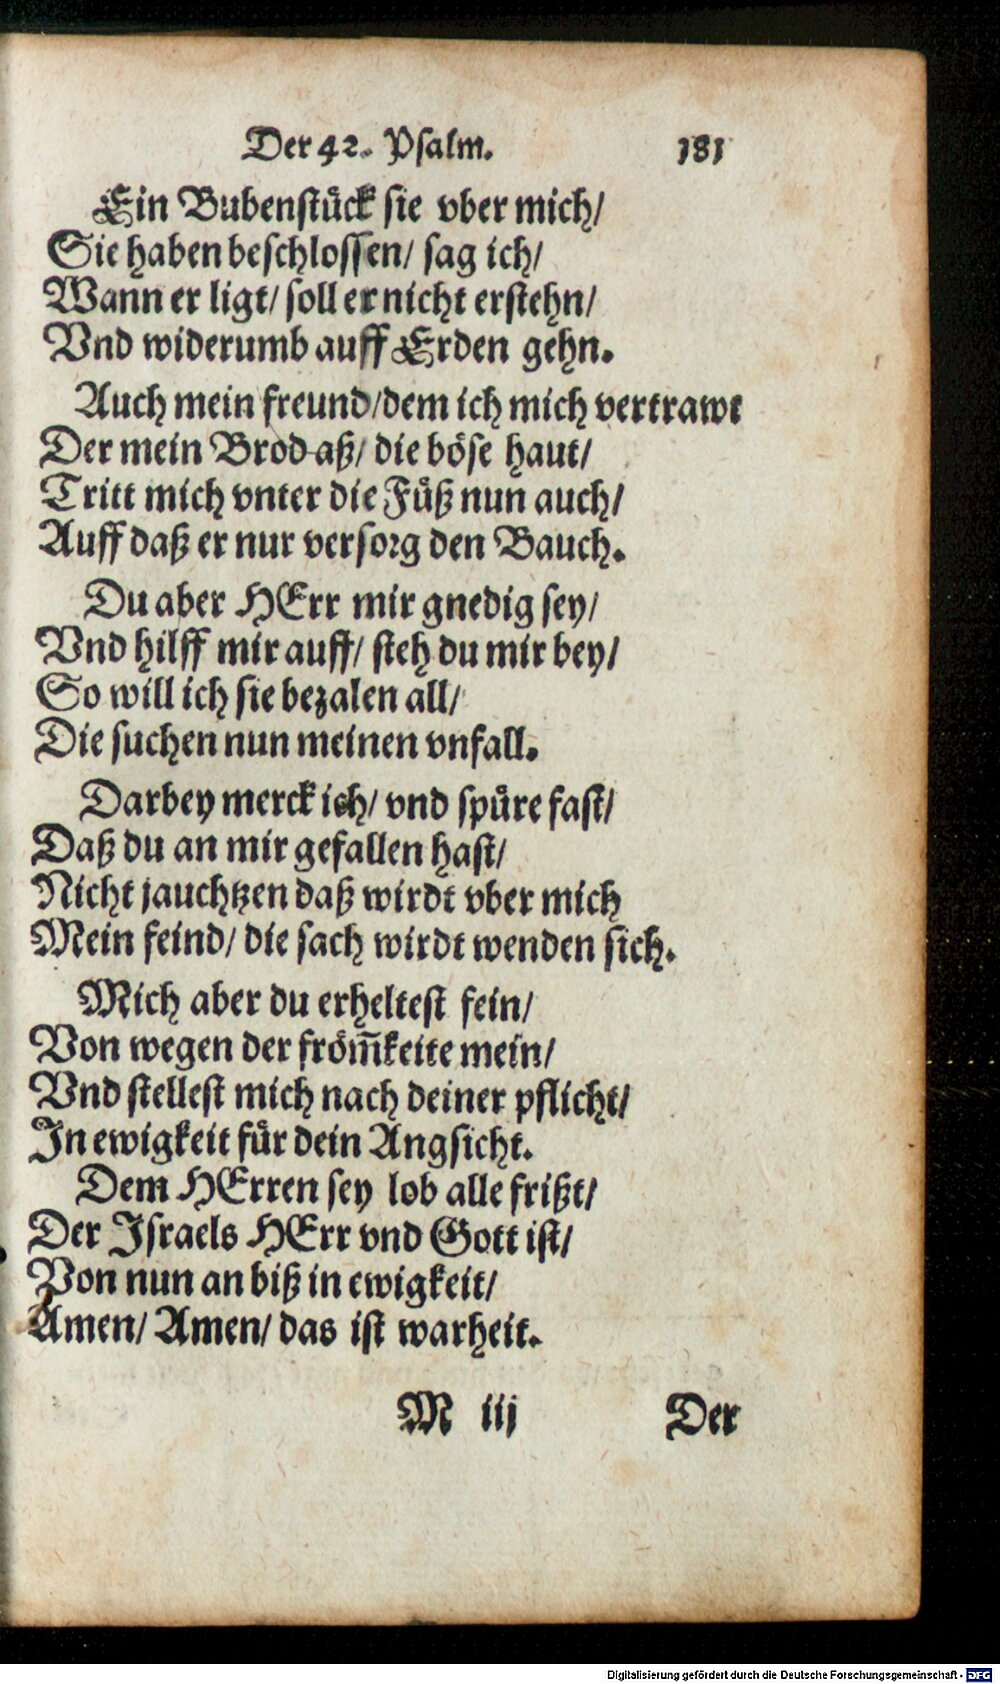 Der 42. Psalm. 181
Ein Bubenstück sie vber mich/
Sie haben beschlossen/ sag ich/
Wann er ligt/ soll er nicht erstehn/
Vnd widerumb auff Erden gehn.
Auch mein freund/dem ich mich vertrawt
Der mein Brod aß/ die böse haut/
Tritt mich vnter die Füß nun auch/
Auff daß er nur versorg den Bauch.
Du aber HErr mir gnedig sey/
Vnd hilff mir auff/ steh du mir bey/
So will ich sie bezalen all/
Die suchen nun meinen vnfall.
Darbey merck ich/ vnd spüre fast/
Daß du an mir gefallen hast/
Nicht jauchtzen daß wirdt vber mich
Mein feind/ die sach wirdt wenden sich.
Mich aber du erheltest fein/
Von wegen der from̃keite mein/
Vnd stellest mich nach deiner pflicht/
In ewigkeit für dein Angsicht.
Dem HErren sey lob alle frißt/
Der Israels HErr vnd Gott ist/
Von nun an biß in ewigkeit/
Amen/ Amen/ das ist warheit.
M iij Der
Digitalisierung gefördert durch die Deutsche Forschungsgemeinschaft - DFG